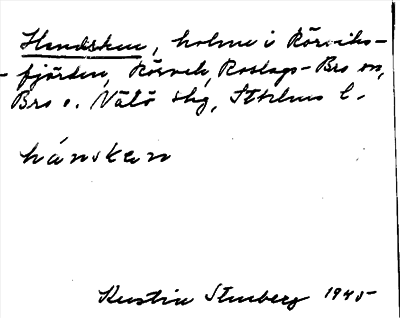 Handsken, holme i Rörviks-
-fjärden, Rörvik, Roslags-Bro sn,
Bro o. Vätö skg, Sthlms l.
hánskan
Kerstin Stenberg 1945